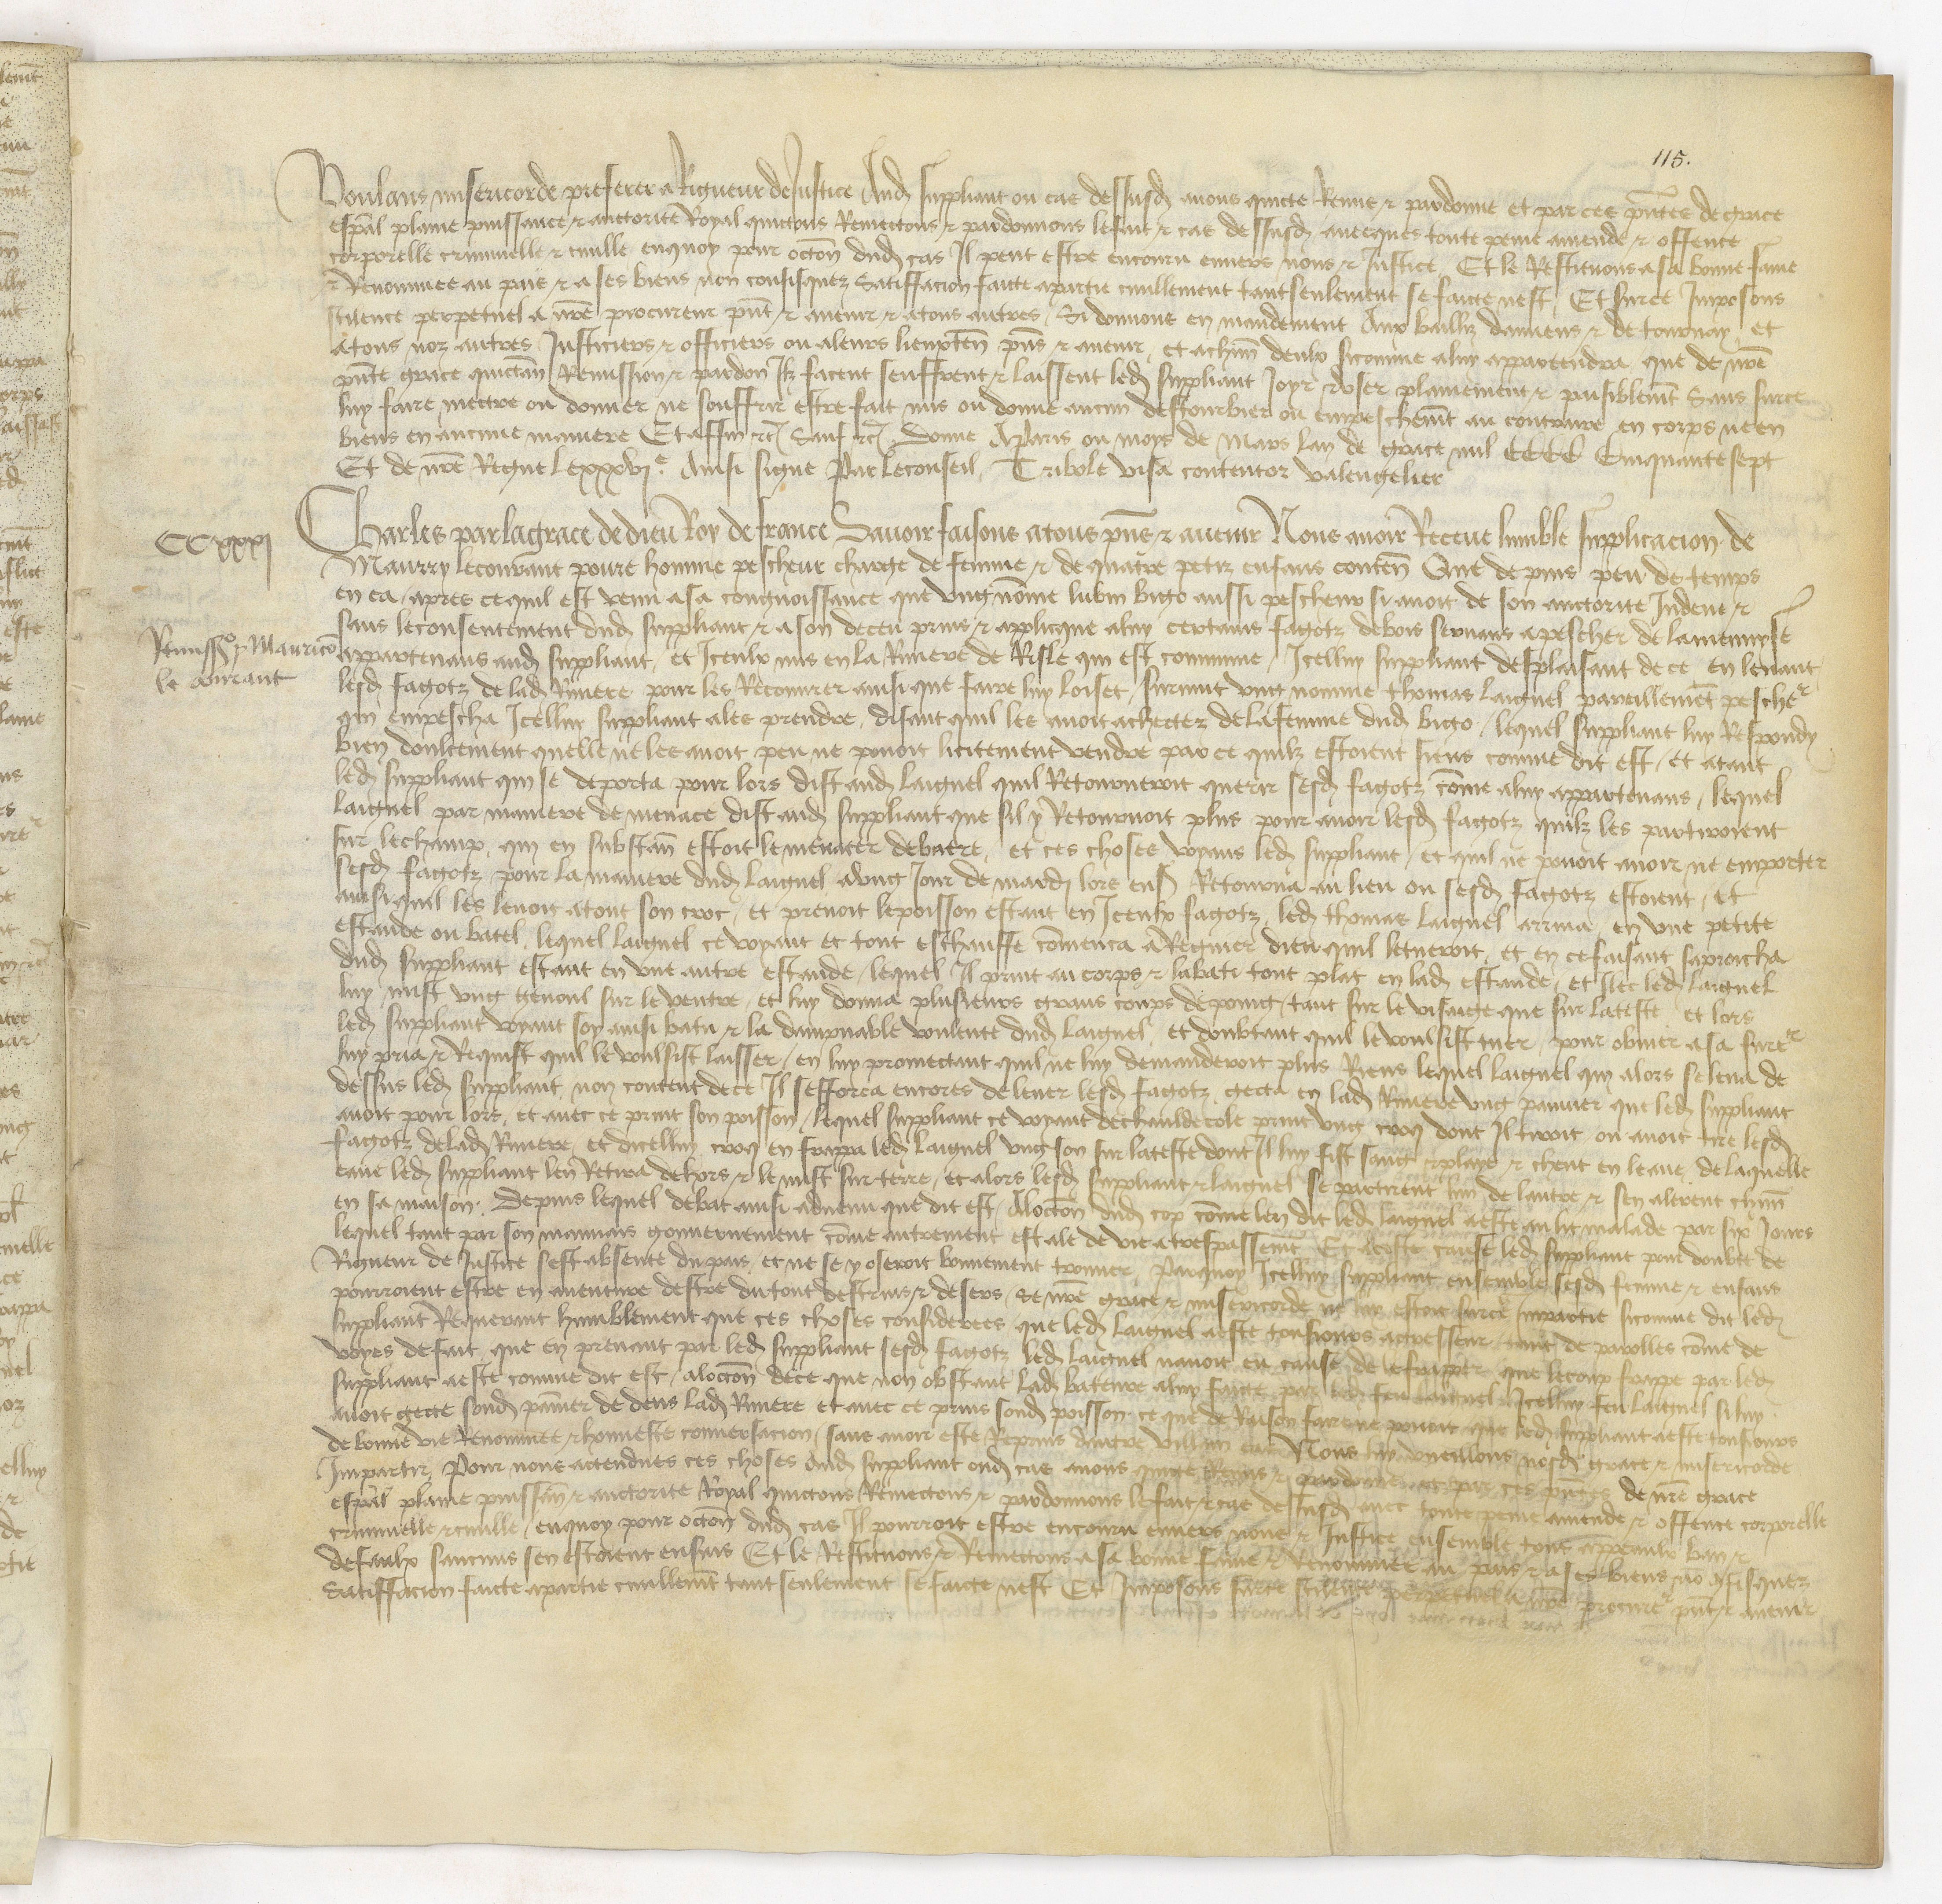 115.
Voulans misericorde preferer a Rigueur de Justice Aud suppliant ou cas dessusd auons quicte Remis & pardonne et par ces pntes de grace
espal plaine puissance & auctorite Royal quictons Remectons & pardonnons le fait & cas dessusd auecques toute peine amende & offence
corporelle criminelle & ciuille en quoy pour occon dud cas Il peut estre encouru enuers nous & Justice Et le Restituons a sa bonne fame
& Renommee au pais & a ses biens non confisquez Satiffacion faicte a partie ciuillement tant seulement se faicte nest Et surce Imposons
silence perpetuel a nre procureur pnt & auenir & a tous autres Si donnons en mandement Aux bailliz damiens & de tournay et
a tous noz autres Justiciers & officiers ou a leurs lieuxten pns & auenir et a chun deulx sicomme a luy appartendra que de nre
pnte grace quictan Remission & pardon Ilz facent seuffrent & laissent led suppliant Joyr & vser plainement & paisiblemt Sans surce
luy faire mectre ou donner ne souffrir estre fait mis ou donne aucun destourbier ou empeschemt au contraire en corps ne en
biens en aucune maniere Et affin &c Sauf &c Donne A Paris ou moys de Mars lan de grace mil CCCC Cinquante sept
Et de nre Regne Le xxxvi e Ainsi signe Par le conseil Tribole visa contentor valengelier
CCxxxi
Charles par la grace de dieu Roy de france Sauoir faisons a tous pns & auenir Nous auoir Receue lumble supplicacion de
Maurry lecourant poure homme pescheur charge de femme & de quatre petiz enfans conten Que depuis peu de temps
en ca apres ce quil est venu a sa congnoissance que vng nomme lubin bigo aussi pescheur si auoit de son auctorite Indeue &
sans leconsentement dud suppliant & a son deceu prins & applicque a luy certains fagotz debois seruans a pescher de la menuyse
Remisso p Mauricio
le courant
appartenans aud suppliant et Iceulx mis en la Riuiere de Risle qui est commune Icelluy suppliant desplaisant de ce en leuant
lesd fagotz de lad Riuiere pour les Recouurer ainsi que faire luy loiset suruint vng nomme thomas laignel pareillemet pescher
qui empescha Icelluy suppliant a les prendre disant quil les auoit achectez de la femme dud bigo lequel suppliant luy Respondy
bien doulcement quelle ne les auoit peu ne pouoit licitement vendre par ce quilz estoient siens comme dit est et atant
led suppliant qui se deporta pour lors dist aud laignel quil Retourneroit querir sesd fagotz come a luy appartenans lequel
laignel par maniere de menace dist aud suppliant que sil y Retournoit plus pour auoir lesd fagotz quilz les partiroient
sur lechamp qui en substan estoit le menacer debatre et ces choses voyans led suppliant et quil ne pouoit auoir ne emporter
sesd fagotz pour la maniere dud laignel a vng Jour de mardi lors ens Retourna au lieu ou sesd fagotz estoient et
ainsi quil les leuoit atout son croc et prenoit lepoisson estant en Iceulx fagotz led thomas laignel arriua en vne petite
estande ou batel lequel laignel ce voyant et tout eschauffe comenca a Regnier dieu quil letueroit et en ce faisant saproucha
dud suppliant estant en vne autre estande lequel Il print au corps & labati tout plat en lad estande et Ilec led laignel
luy mist vng genoul sur le ventre et luy donna plusieurs grans coups depoing tant sur le visaige que sur lateste et lors
led suppliant voyant soy ainsi batu & la dampnable voulente dud laignel et doubtant quil levoulsist tuer pour obuier a sa fureur
luy pria & Requist quil le voulsist laisser en luy promectant quil ne luy demanderoit plus Riens lequel laignel qui alors seleua de
dessus led suppliant non content de ce Il sefforca encores de leuer lesd fagotz gecta en lad Riuiere vng pannier que led suppliant
auoit pour lors et auec ce print son poisson lequel suppliant ce voyant dechaulde cole print vng croq dont Il tiroit ou auoit tire lesd
fagotz de lad Riuiere et dicelluy croq en frappa led laignel vng son sur lateste dont Il luy fist sang & playe & cheut en leaue de laquelle
eaue led suppliant len Retira dehors & le mist sur terre et alors lesd suppliant & laignel se partirent lun de lautre & sen alerent chun
en sa maison Depuis lequel debat ainsi aduenu que dit est Aloccon dud cop come len dit led laignel aeste au lit malade par six Jours
lequel tant par son mauuais gouuernement come autrement est ale de vie a trespassemt Et a ceste cause led suppliant pour doubte de
Rigueur de Justice sest absente du pais et ne se y oseroit bonnement trouuer Parquoy Icelluy suppliant ensemble sesd femme & enfans
pourroient estre en auenture destre du tout destruis & desers se nre grace & misericorde ne luy estoit surce Impartie sicomme dit led
suppliant Requerant humblement que ces choses considerees que led laignel aeste tousiours agresseur tant de parolles come de
voyes de fait que en prenant par led suppliant sesd fagotz led laignel nauoit eu cause de le frapper que lecoup frappe par led
suppliant aeste comme dit est aloccon dece que non obstant lad bateure a luy faicte par led feu laignel Icelluy feu laignel si luy
auoit gecte sond panier de dens lad Riuiere et auec ce prins sond poisson ce que de Raison faire ne pouoit que led suppliant aeste tousiours
de bonne vie Renommee & honneste conuersacion sans auoir este Reprins dautre villain cas Nous luy vueillons nosd grace & misericorde
Impartir Pour nous actendues ces choses Aud suppliant oud cas auons quicte Remis & pardonne et par ces pntes de nre grace
espal plaine puissan & auctorite Royal quictons Remectons & pardonnons le fait & cas dessusd auec toute peine amende & offence corporelle
criminelle & ciuille en quoy pour occon dud cas Il pourroit estre encouru enuers nous & Justice ensemble tous appeaulx ban &
defaulx saucuns sen estoient ensuis Et le Restituons & Remectons a sa bonne fame & Renommee au pais & a ses biens no cofisquez
Satiffacion faicte apartie ciuillemt tant seulement se faicte nest Et Imposons surce silence perpetuel a nre procureur pnt & auenir